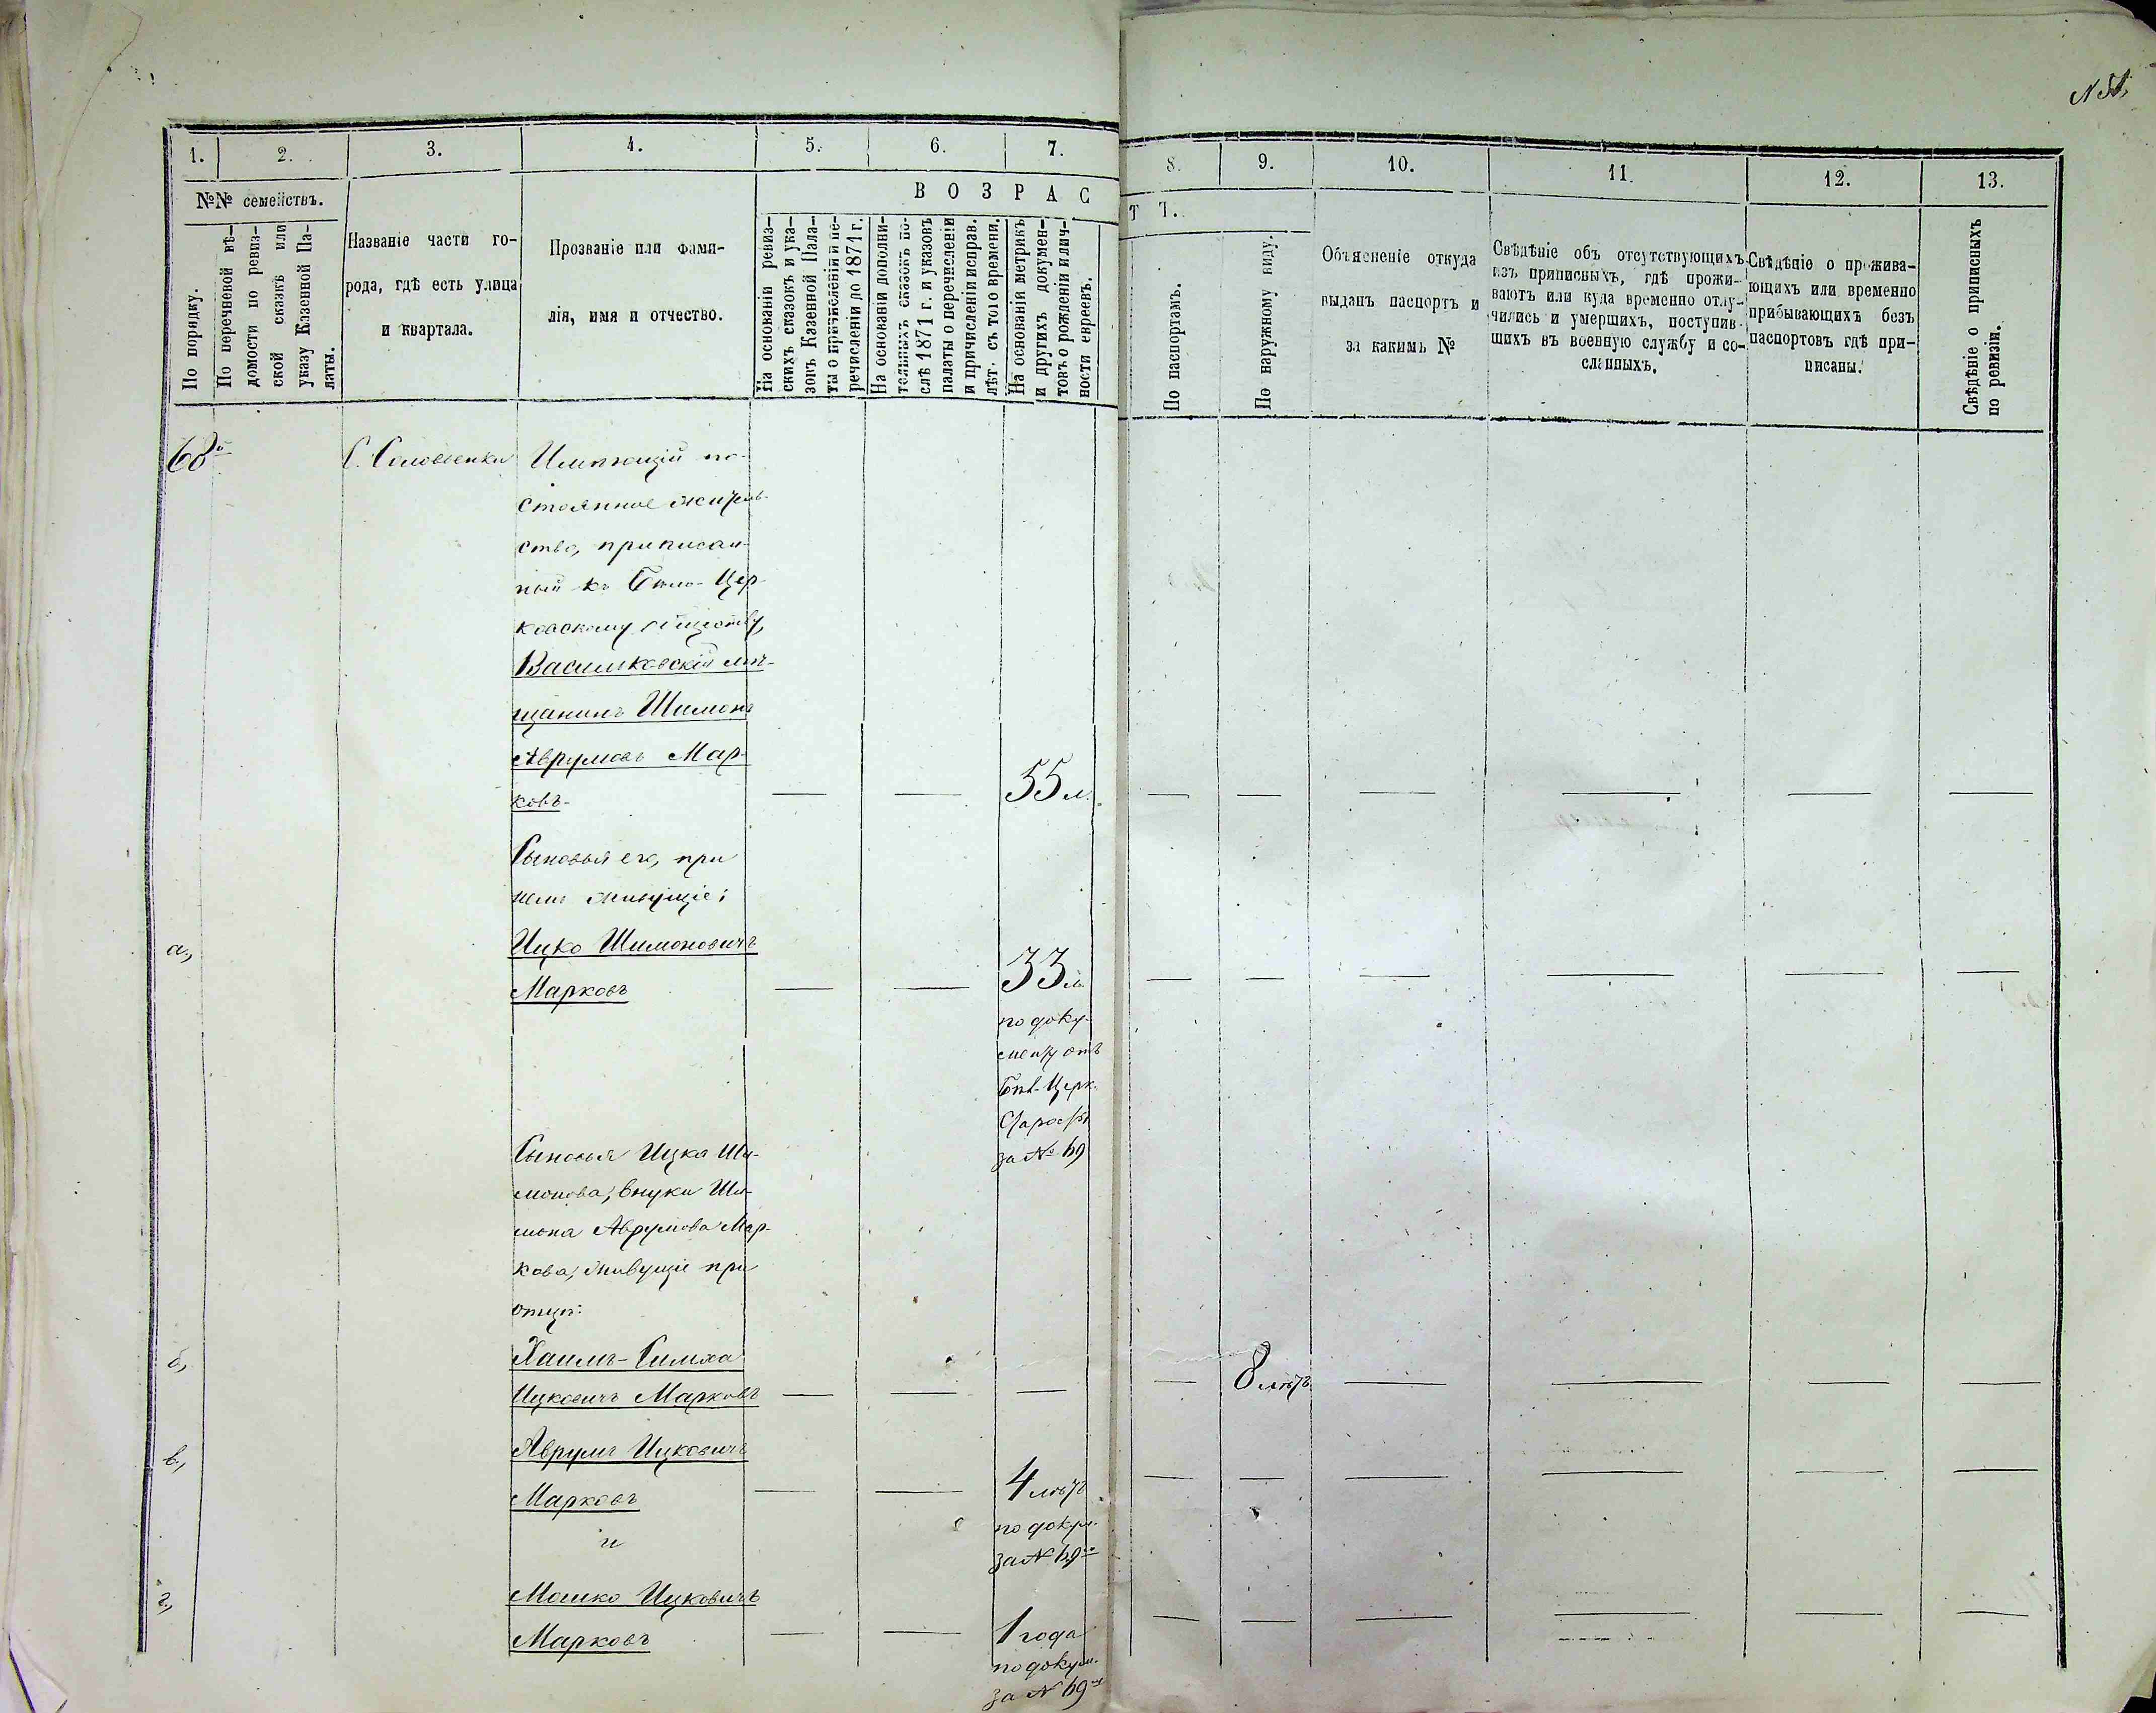 1.
2.
3.
4.
5.
6.
7.
8.
9.
10.
11.
12.
13.
№№ семействъ.
По порядку.
По перечневой вѣ-
домости по ревиз-
ской сказкѣ или
указу Казенной Па-
латы.
Названіе части го-
рода, гдѣ есть улица
и квартала.
Прозваніе или фами-
лія, имя и отчество.
ВОЗРАС
ТЪ.
На основаніи ревиз-
скихъ сказокъ и ука-
зовъ Казенной Пала-
ты о причисленіи и пе-
речисленіи до 1871 г.
На основаніи дополни-
тельныхъ сказокъ по-
слѣ 1871 г. и указовъ
палаты о перечисленіи
и причисленіи исправ.
лѣт. съ того времени.
На основаніи метрикъ
и другихъ докумен-
товъ о рожденіи и лич-
ности евреевъ.
По паспортамъ.
По наружному виду.
Объясненіе откуда
выданъ паспортъ и
за какимъ №
Свѣдѣніе объ отсутствующихъ
изъ приписныхъ, гдѣ прожи-
ваютъ или куда временно отлу-
чились и умершихъ, поступив-
щихъ въ военную службу и со-
сланныхъ.
Свѣдѣніе о прожива-
ющихъ или временно
прибывающихъ безъ
паспортовъ гдѣ при-
писаны.
Свѣдѣніе о приписныхъ
по ревизіи.
68й
С. Соловьенки
Имѣющій по-
стоянное житель-
ство, приписан-
ный къ Бѣло-Цер-
ковскому обществу,
Васильковскій мѣ-
щанинъ Шимонъ
Аврумовъ Мар-
ковъ-
55 л.
Сыновья его, при
немъ живущіе:
а.,
Ицко Шимоновичъ
Марковъ
33 л.
по доку-
менту отъ
Бѣл-Церк.
Старосты
за № 69
Сыновья Ицка Ши-
монова, внуки Ши-
мона Аврумова Мар-
кова, живущіе при
отцѣ:
б.,
Хаимъ-Симха
Ицковичъ Марковъ
8 лѣтъ
в.,
Аврумъ Ицковичъ
Марковъ
4 лѣтъ
по докум.
за № 69мъ
и
г.,
Мошко Ицковичъ
Марковъ
1 года
по докум.
за № 69мъ